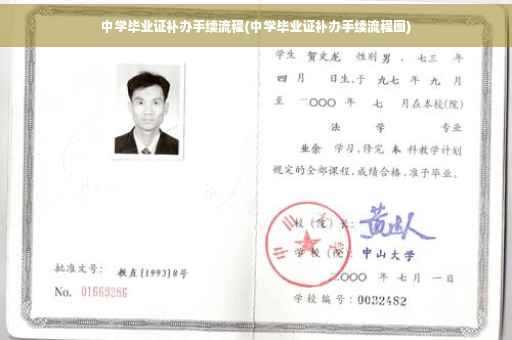 中学毕业证补办手续流程(中学毕业证补办手续流程图)
学生 贺文龙 性别 男 、七三 年
四 月 日生,于 九七 年 九 月
至 二〇〇〇 年 七 月在本校(院)
法 学 专业
业余 学习,修完 本 科教学计划
规定的全部课程,成绩合格,准予毕业。
校(院)长:
学校(院): 中山大学
二〇〇〇 年 七 月 一 日
学校编号: 0032482
批准文号: 教直[1993]8号
No. 01669286